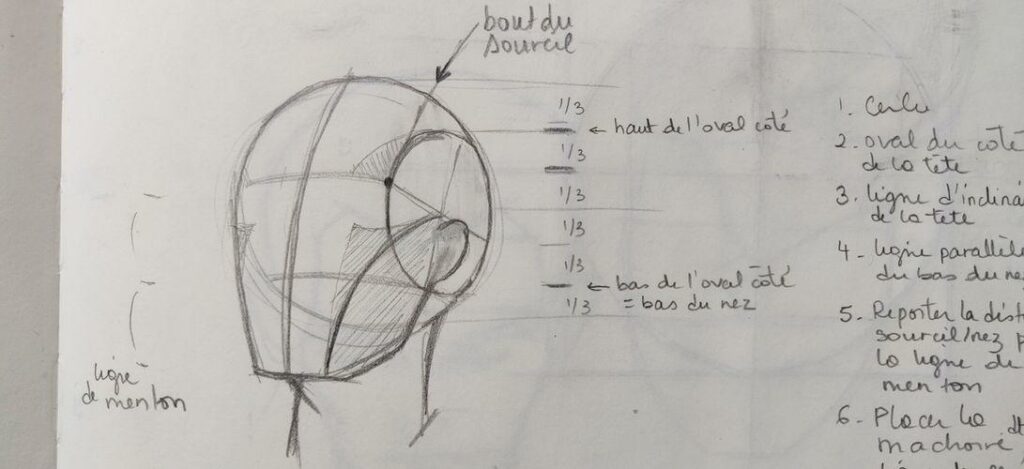 bout du
sourcil
1/3
← haut de l'oval côté
1/3
1/3
1/3
1/3
← bas de l'oval côté
1/3 = bas du nez
ligne
de menton
1.
2. oval du côté
de la tête
3. ligne d'inclina
de la tête
4 - ligne parallèle
du bas du ne
5. Reporter la dist
sourcil/nez p
la ligne de
menton
6 - Placer la
machoire